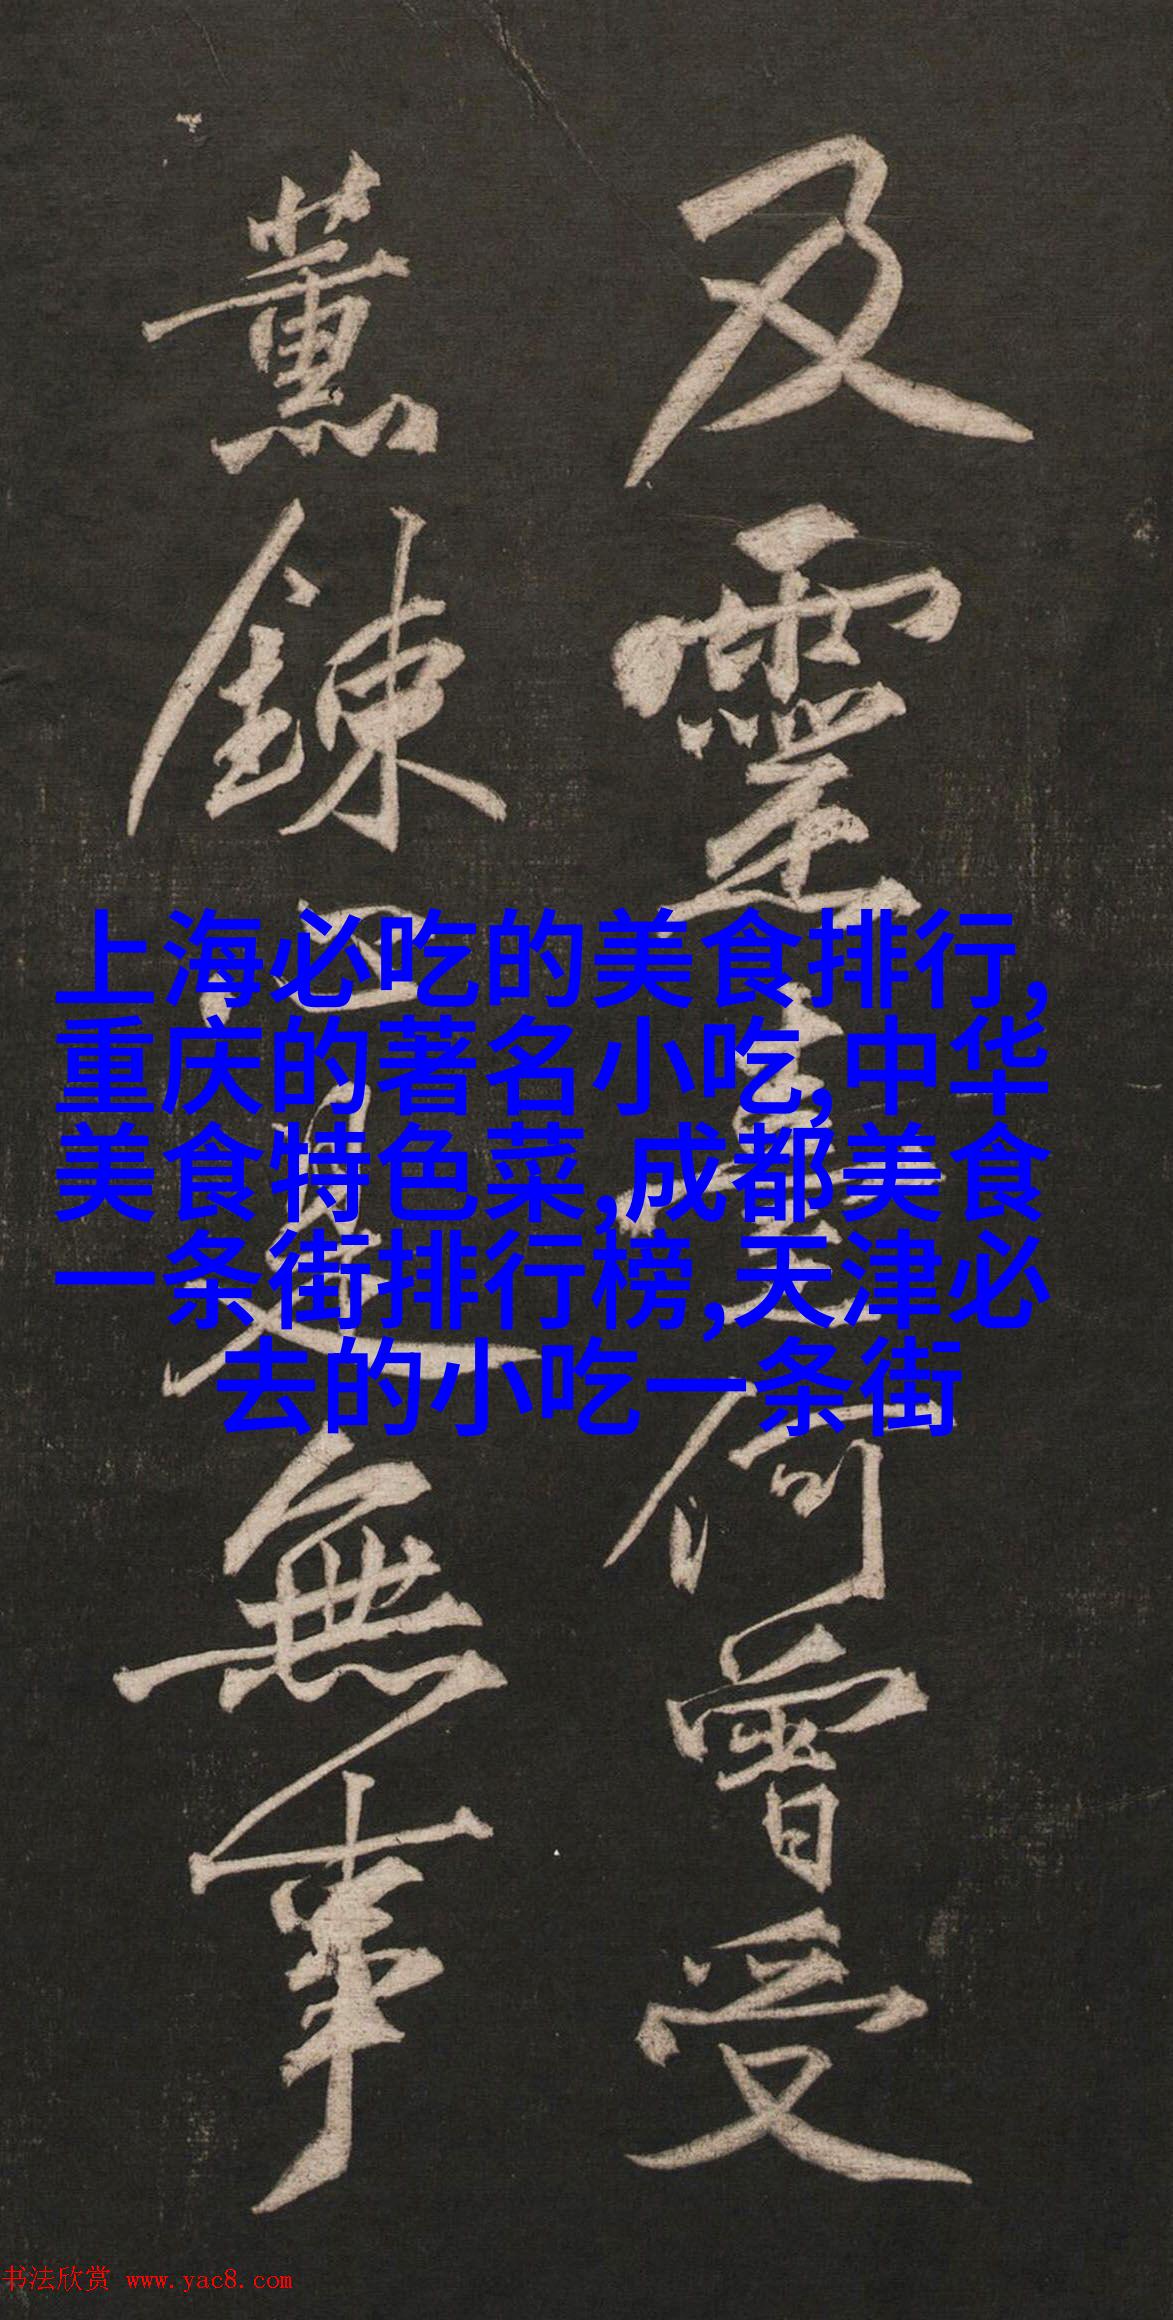 及靈臺何曾受
薰鍊無事
上海必吃的美食排行,
重庆的著名小吃,中华
美食特色菜,成都美食
一条街排行榜,天津必
去的小吃一条街
书法欣赏 www.yac8.com